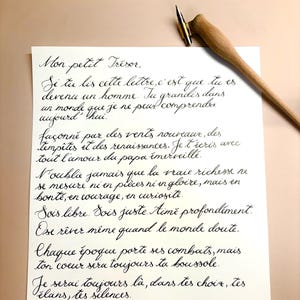 Mon petit Trésor,
Si tu lis cette lettre, c'est que tu es
devenu un homme. Tu grandis dans
un monde que je ne peux comprendre
aujourd'hui.
Façonné par des vents nouveaux, des
tempêtes et des renaissances. Je t'écris avec
tout l'amour du papa émerveillé.
N'oublie jamais que la vraie richesse ne
se mesure ni en pièces ni en gloire, mais en
bonté, en courage, en curiosité.
Sois libre Sois juste Aime profondément.
Ose rêver même quand le monde doute.
Chaque époque porte ses combats, mais
ton cœur sera toujours ta boussole.
Je serai toujours là, dans tes choix, tes
élans, tes silences.